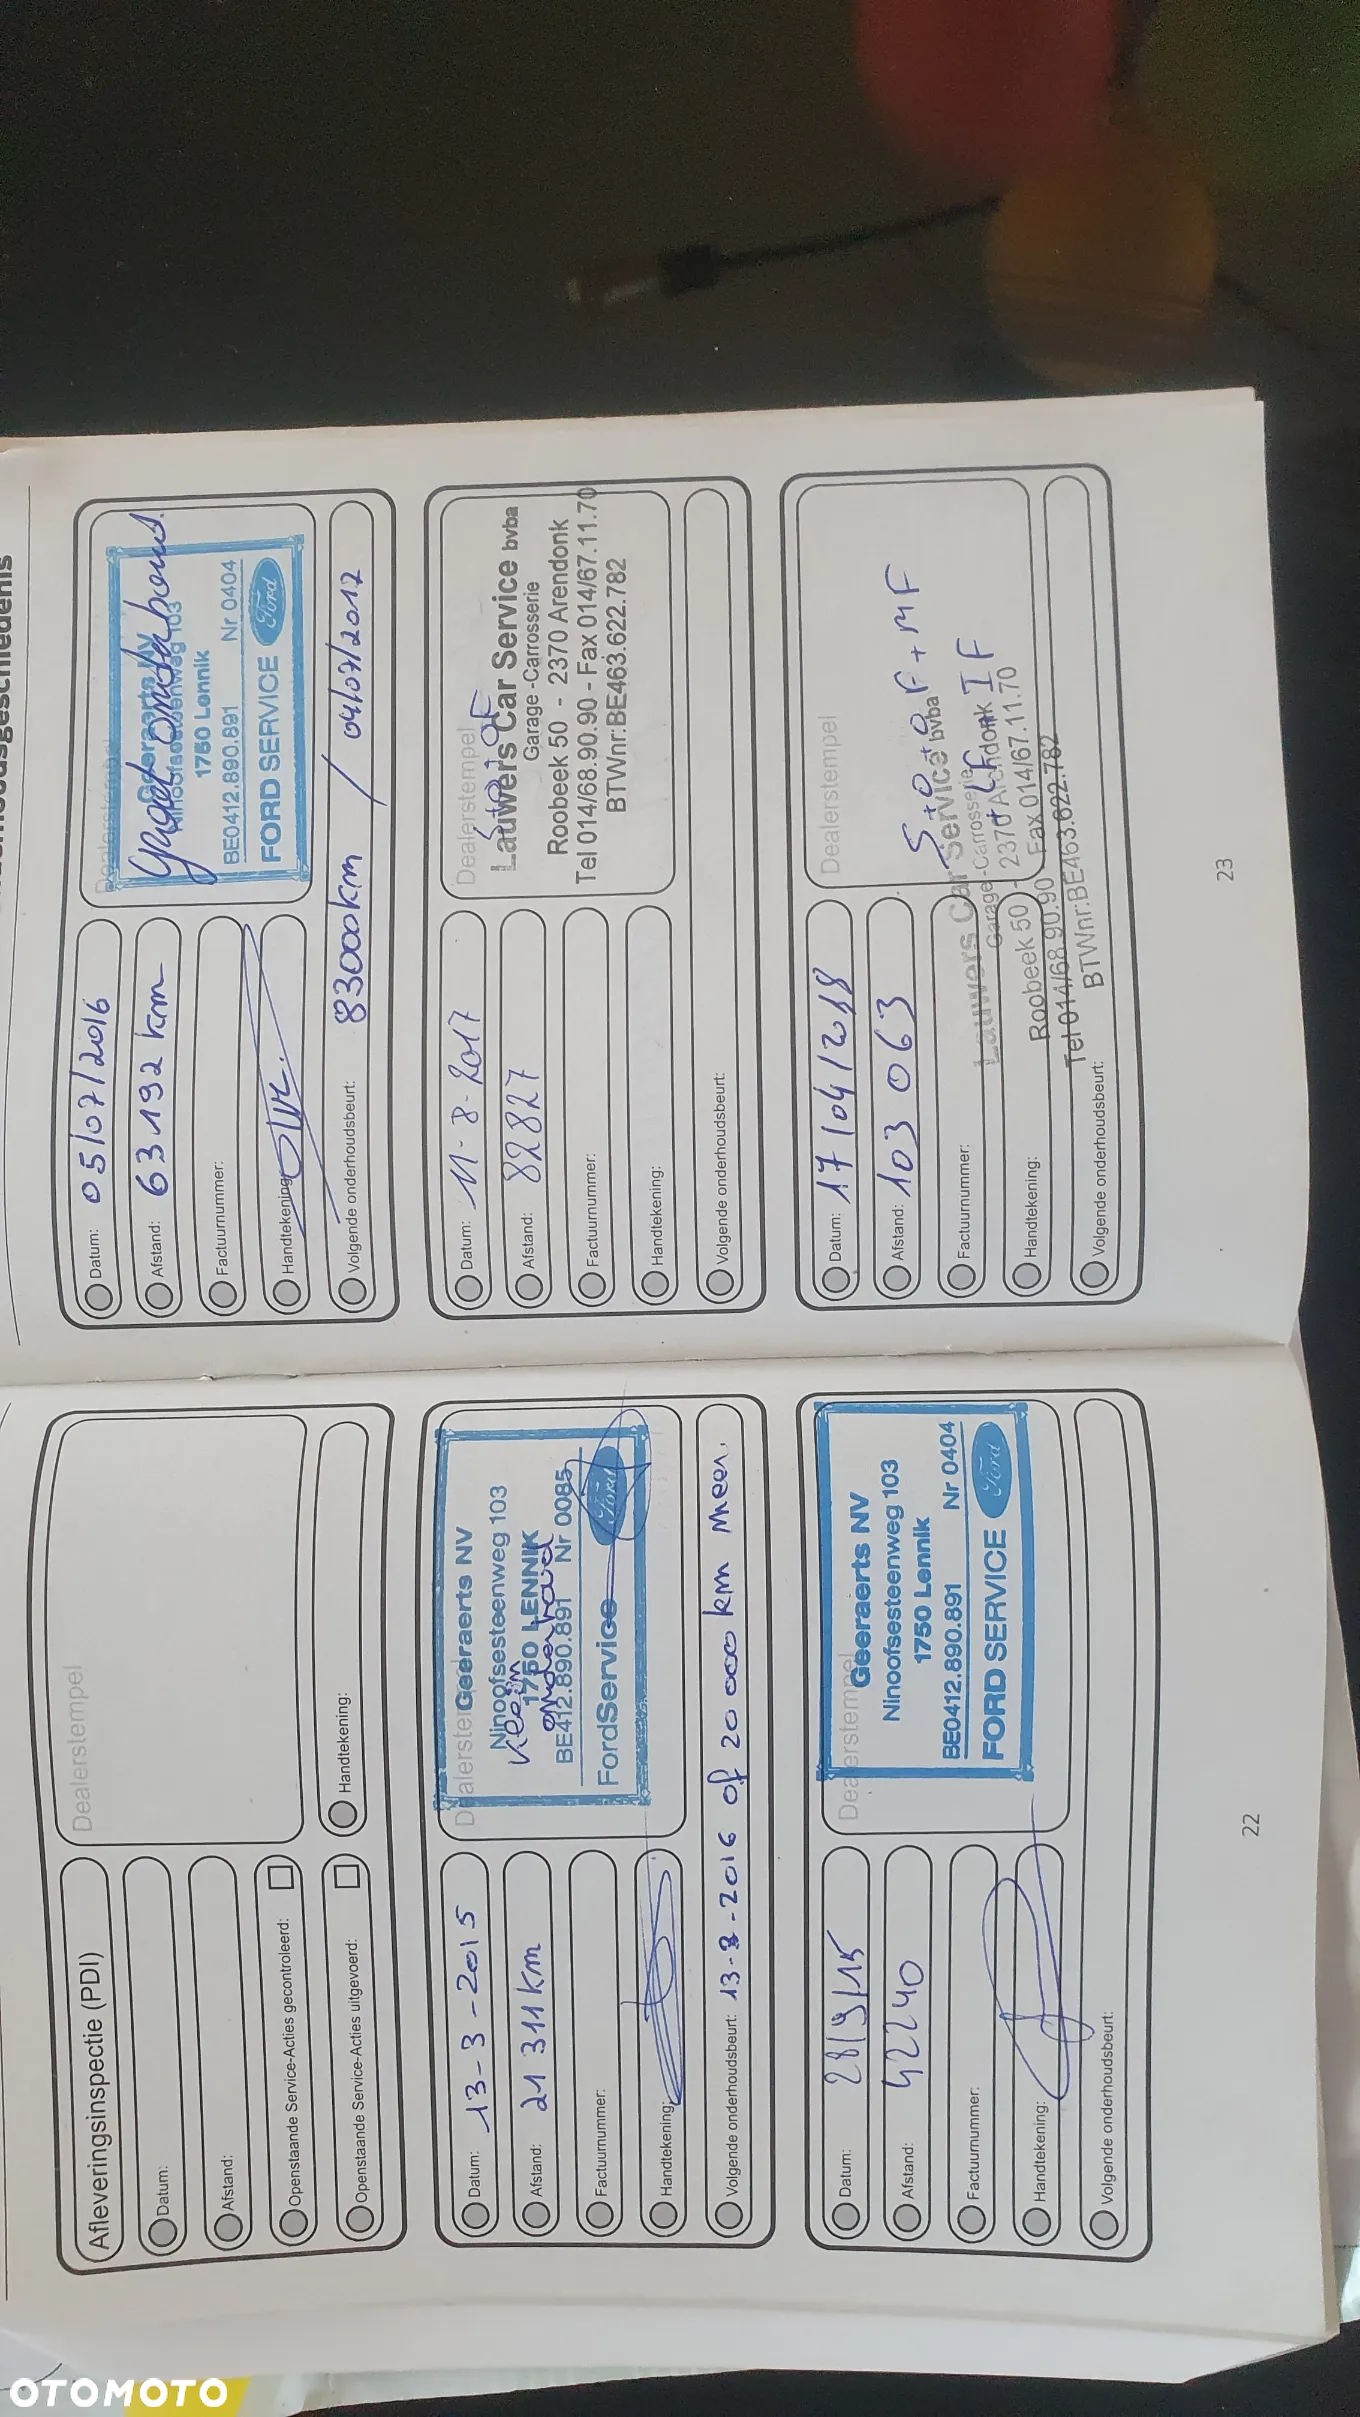 Afleveringsinspectie (PDI)
Datum:
Afstand:
Openstaande Service-Acties gecontroleerd:
Openstaande Service-Acties uitgevoerd:
Dealerstempel
Handtekening:
Datum: 13-3-2015
Afstand: 21 311 km
Factuurnummer:
Handtekening:
Volgende onderhoudsbeurt: 13-8-2016 of 20 000 km meer.
Dealerstempel
Geeraerts NV
Ninoofsesteenweg 103
Klein
1750 LENNIK
onderhoud
BE412.890.891 Nr 0085
FordService
Ford
Datum: 28/9/15
Afstand: 42240
Factuurnummer:
Handtekening:
Volgende onderhoudsbeurt:
Dealerstempel
Geeraerts NV
Ninoofsesteenweg 103
1750 Lennik
BE0412.890.891 Nr 0404
FORD SERVICE
Ford
22
Datum: 05/07/2016
Afstand: 63192 km
Factuurnummer:
Handtekening:
Volgende onderhoudsbeurt: 83000km / 04/07/2017
Dealerstempel
Geeraerts NV
Ninoofsesteenweg 103
1750 Lennik
BE0412.890.891 Nr 0404
FORD SERVICE
Ford
Datum: 11-8-2017
Afstand: 82827
Factuurnummer:
Handtekening:
Volgende onderhoudsbeurt:
Dealerstempel
Lauwers Car Service bvba
Garage -Carrosserie
Roobeek 50 - 2370 Arendonk
Tel 014/68.90.90 - Fax 014/67.11.70
BTWnr:BE463.622.782
Datum: 17/04/2018
Afstand: 103 063
Factuurnummer:
Handtekening:
Volgende onderhoudsbeurt:
Dealerstempel
S+O+OF+MF
+ LF + IF
Lauwers Car Service bvba
Garage -Carrosserie
Roobeek 50 - 2370 Arendonk
Tel 014/68.90.90 Fax 014/67.11.70
BTWnr:BE463.622.782
23
OTOMOTO